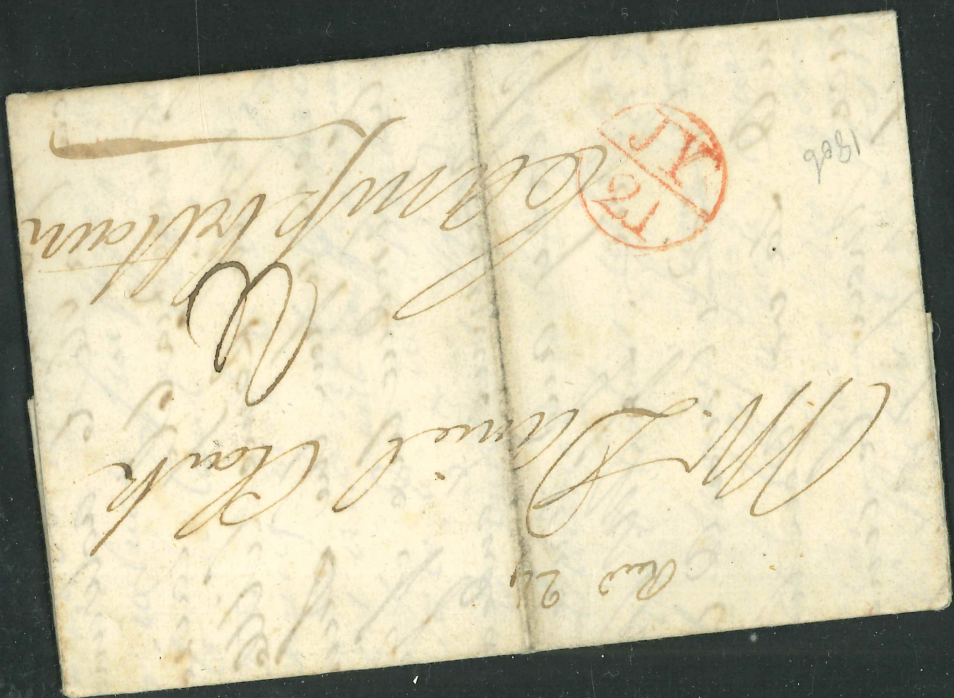 Rec'd 24
Mr. Daniel Clark
Campbeltown
JY
21
1806